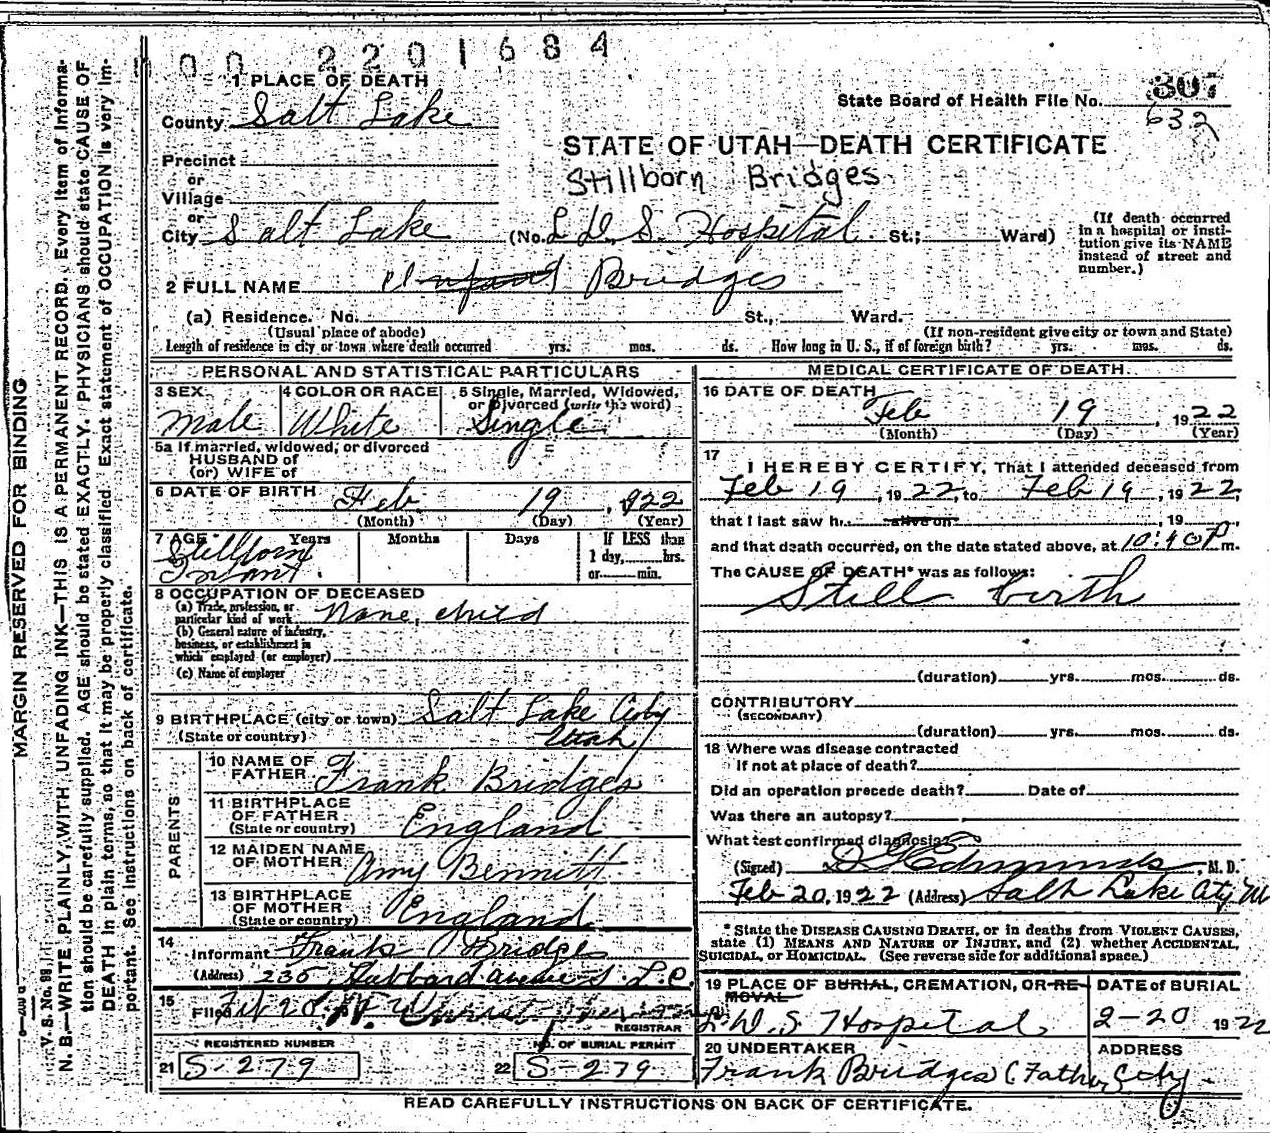 00 2201684
1 PLACE OF DEATH
County Salt Lake
State Board of Health File No. 307
632
STATE OF UTAH—DEATH CERTIFICATE
Stillborn Bridges
Precinct
or
Village
or
City Salt Lake (No. L. D. S. Hospital St.; Ward)
(If death occurred in a hospital or institution give its NAME instead of street and number.)
2 FULL NAME Infant Bridges
(a) Residence. No. St., Ward.
(Usual place of abode) (If non-resident give city or town and State)
Length of residence in city or town where death occurred yrs. mos. ds. How long in U. S., if of foreign birth? yrs. mos. ds.
PERSONAL AND STATISTICAL PARTICULARS
3 SEX Male
4 COLOR OR RACE White
5 Single, Married, Widowed, or Divorced (write the word) Single
5a If married, widowed, or divorced
HUSBAND of
(or) WIFE of
6 DATE OF BIRTH Feb. 19, 1922
(Month) (Day) (Year)
7 AGE Years Months Days If LESS than 1 day, hrs. or min.
Stillborn Infant.
8 OCCUPATION OF DECEASED
(a) Trade, profession, or particular kind of work None, child
(b) General nature of industry, business, or establishment in which employed (or employer)
(c) Name of employer
9 BIRTHPLACE (city or town) Salt Lake City
(State or country) Utah
PARENTS
10 NAME OF FATHER Frank Bridges
11 BIRTHPLACE OF FATHER England
(State or country)
12 MAIDEN NAME OF MOTHER Amy Bennitt
13 BIRTHPLACE OF MOTHER England
(State or country)
14 Informant Frank Bridges
(Address) 235 Hubbard avenue S. L. C.
15 Filed
REGISTRAR
REGISTERED NUMBER
21 S-279
NO. OF BURIAL PERMIT
22 S-279
MEDICAL CERTIFICATE OF DEATH
16 DATE OF DEATH Feb 19 1922
(Month) (Day) (Year)
17 I HEREBY CERTIFY, That I attended deceased from
Feb 19, 1922, to Feb 19, 1922,
that I last saw h alive on , 19 ,
and that death occurred, on the date stated above, at 10:40 P m.
The CAUSE OF DEATH* was as follows:
Still birth
(duration) yrs. mos. ds.
CONTRIBUTORY
(SECONDARY)
(duration) yrs. mos. ds.
18 Where was disease contracted
If not at place of death?
Did an operation precede death? Date of
Was there an autopsy?
What test confirmed diagnosis?
(Signed) Edmunds, M. D.
Feb 20, 1922 (Address) Salt Lake City
* State the DISEASE CAUSING DEATH, or in deaths from VIOLENT CAUSES, state (1) MEANS AND NATURE OF INJURY, and (2) whether ACCIDENTAL, SUICIDAL, or HOMICIDAL. (See reverse side for additional space.)
19 PLACE OF BURIAL, CREMATION, OR REMOVAL
L. D. S. Hospital
DATE of BURIAL
2-20 1922
20 UNDERTAKER
Frank Bridges (Father)
ADDRESS
City
READ CAREFULLY INSTRUCTIONS ON BACK OF CERTIFICATE.
MARGIN RESERVED FOR BINDING
V. S. No. 98
N. B.—WRITE PLAINLY, WITH UNFADING INK—THIS IS A PERMANENT RECORD. Every item of information should be carefully supplied. AGE should be stated EXACTLY. PHYSICIANS should state CAUSE OF DEATH in plain terms, so that it may be properly classified. Exact statement of OCCUPATION is very important. See instructions on back of certificate.